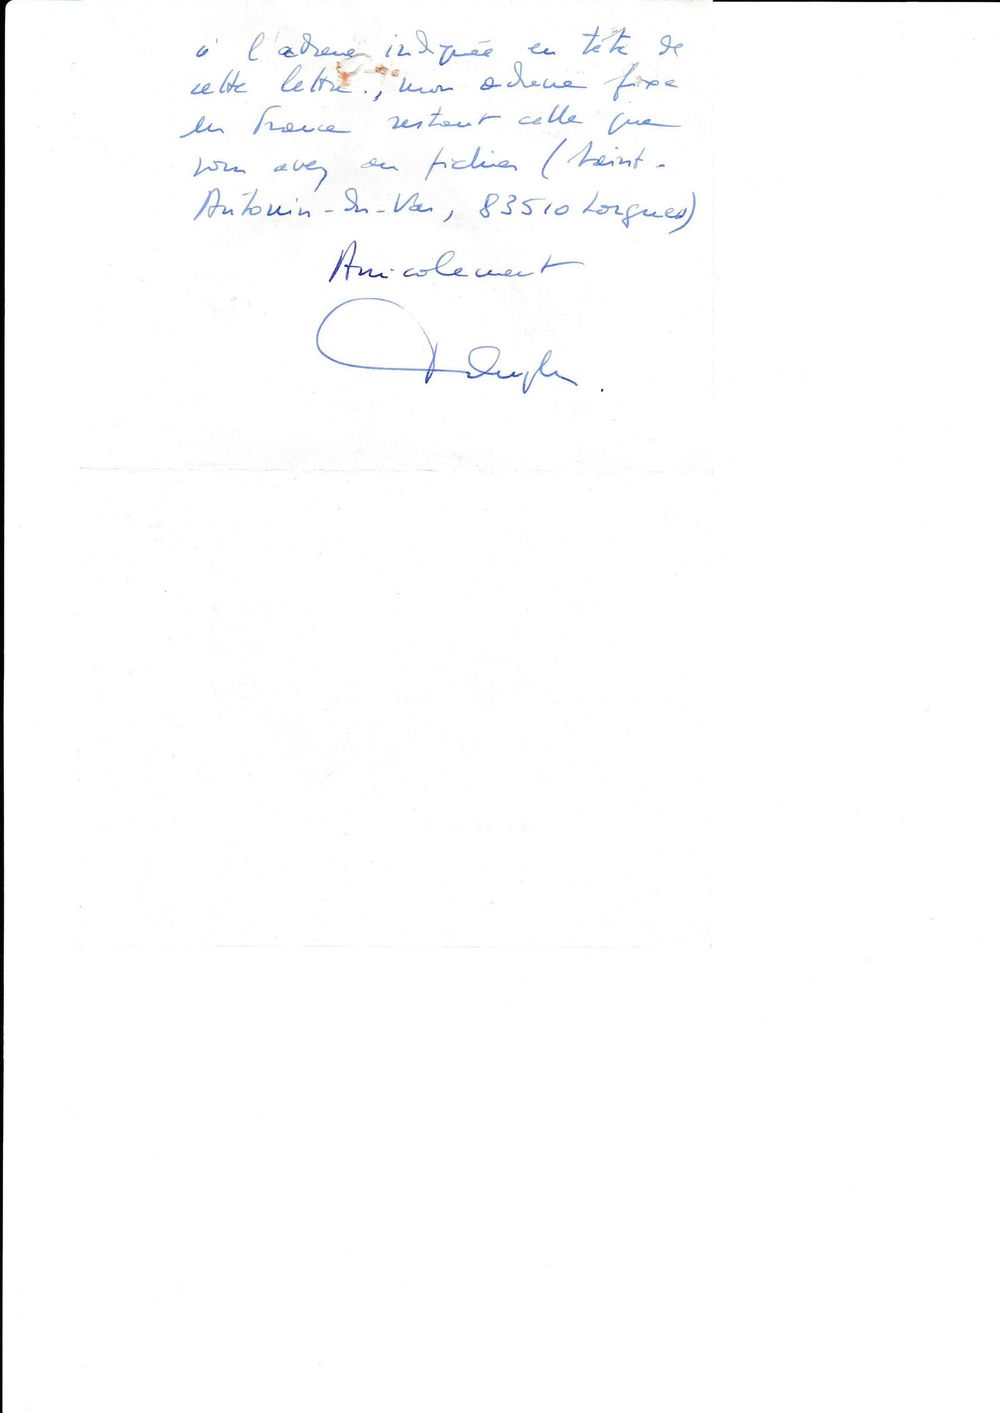 à l'adresse indiquée en tête de
cette lettre, mon adresse fixe
en France restant celle que
vous avez en fichier (Saint-
Antonin-du-Var, 83510 Lorgues)
Amicalement